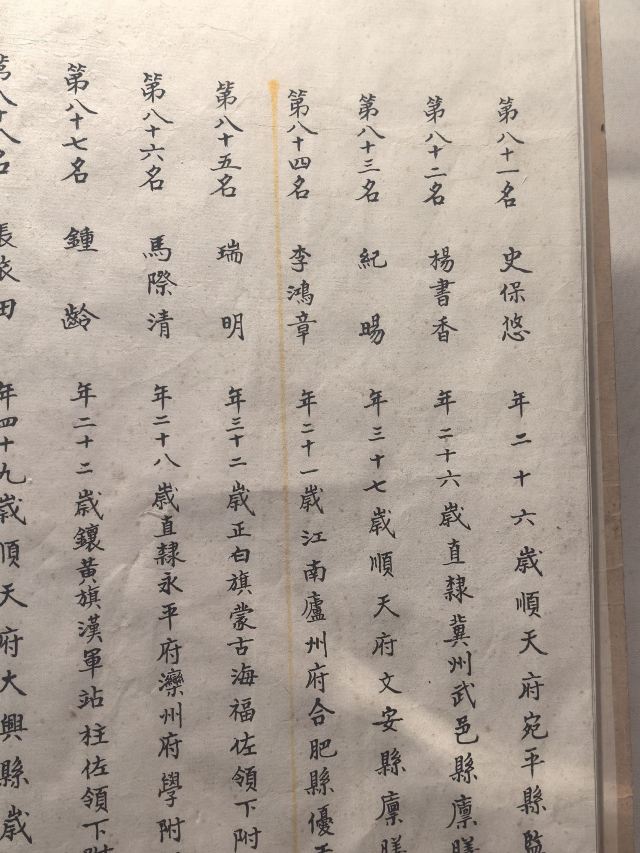 第八十一名 史保悠 年二十六歲順天府宛平縣監
第八十二名 楊書香 年二十六歲直隸冀州武邑縣廩膳
第八十三名 紀暘 年三十七歲順天府文安縣廩膳
第八十四名 李鴻章 年二十一歲江南廬州府合肥縣優
第八十五名 瑞明 年三十二歲正白旗蒙古海福佐領下附
第八十六名 馬際清 年二十八歲直隸永平府灤州府學附
第八十七名 鍾齡 年二十二歲鑲黃旗漢軍站柱佐領下附
第八十八名 張 田 年四十九歲順天府大興縣歲